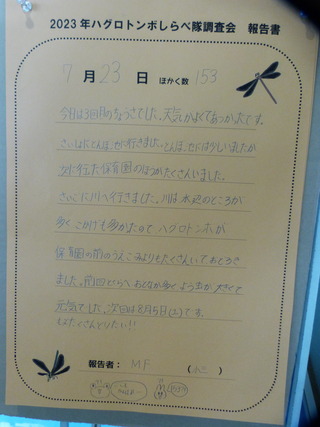 2023年ハグロトンボしらべ隊調査会 報告書
7月23日 ほかく数 153
今日は3回目のちょうさでした。天気がよくてあつかったです。
さいしょにてんぼ
次に行った保育園のほうがたくさんいました。
さいごに川へ行きました。川は水辺のところが
多く こかげも多かったので ハグロトンボが
保育園の前の よりもたくさんいておどろき
ました。前回とくらべ おとなが多く ようす が大きくて
元気でした。次回は8月5日(土)です。
もっとたくさんとりたい!!
報告者: MF (小二)